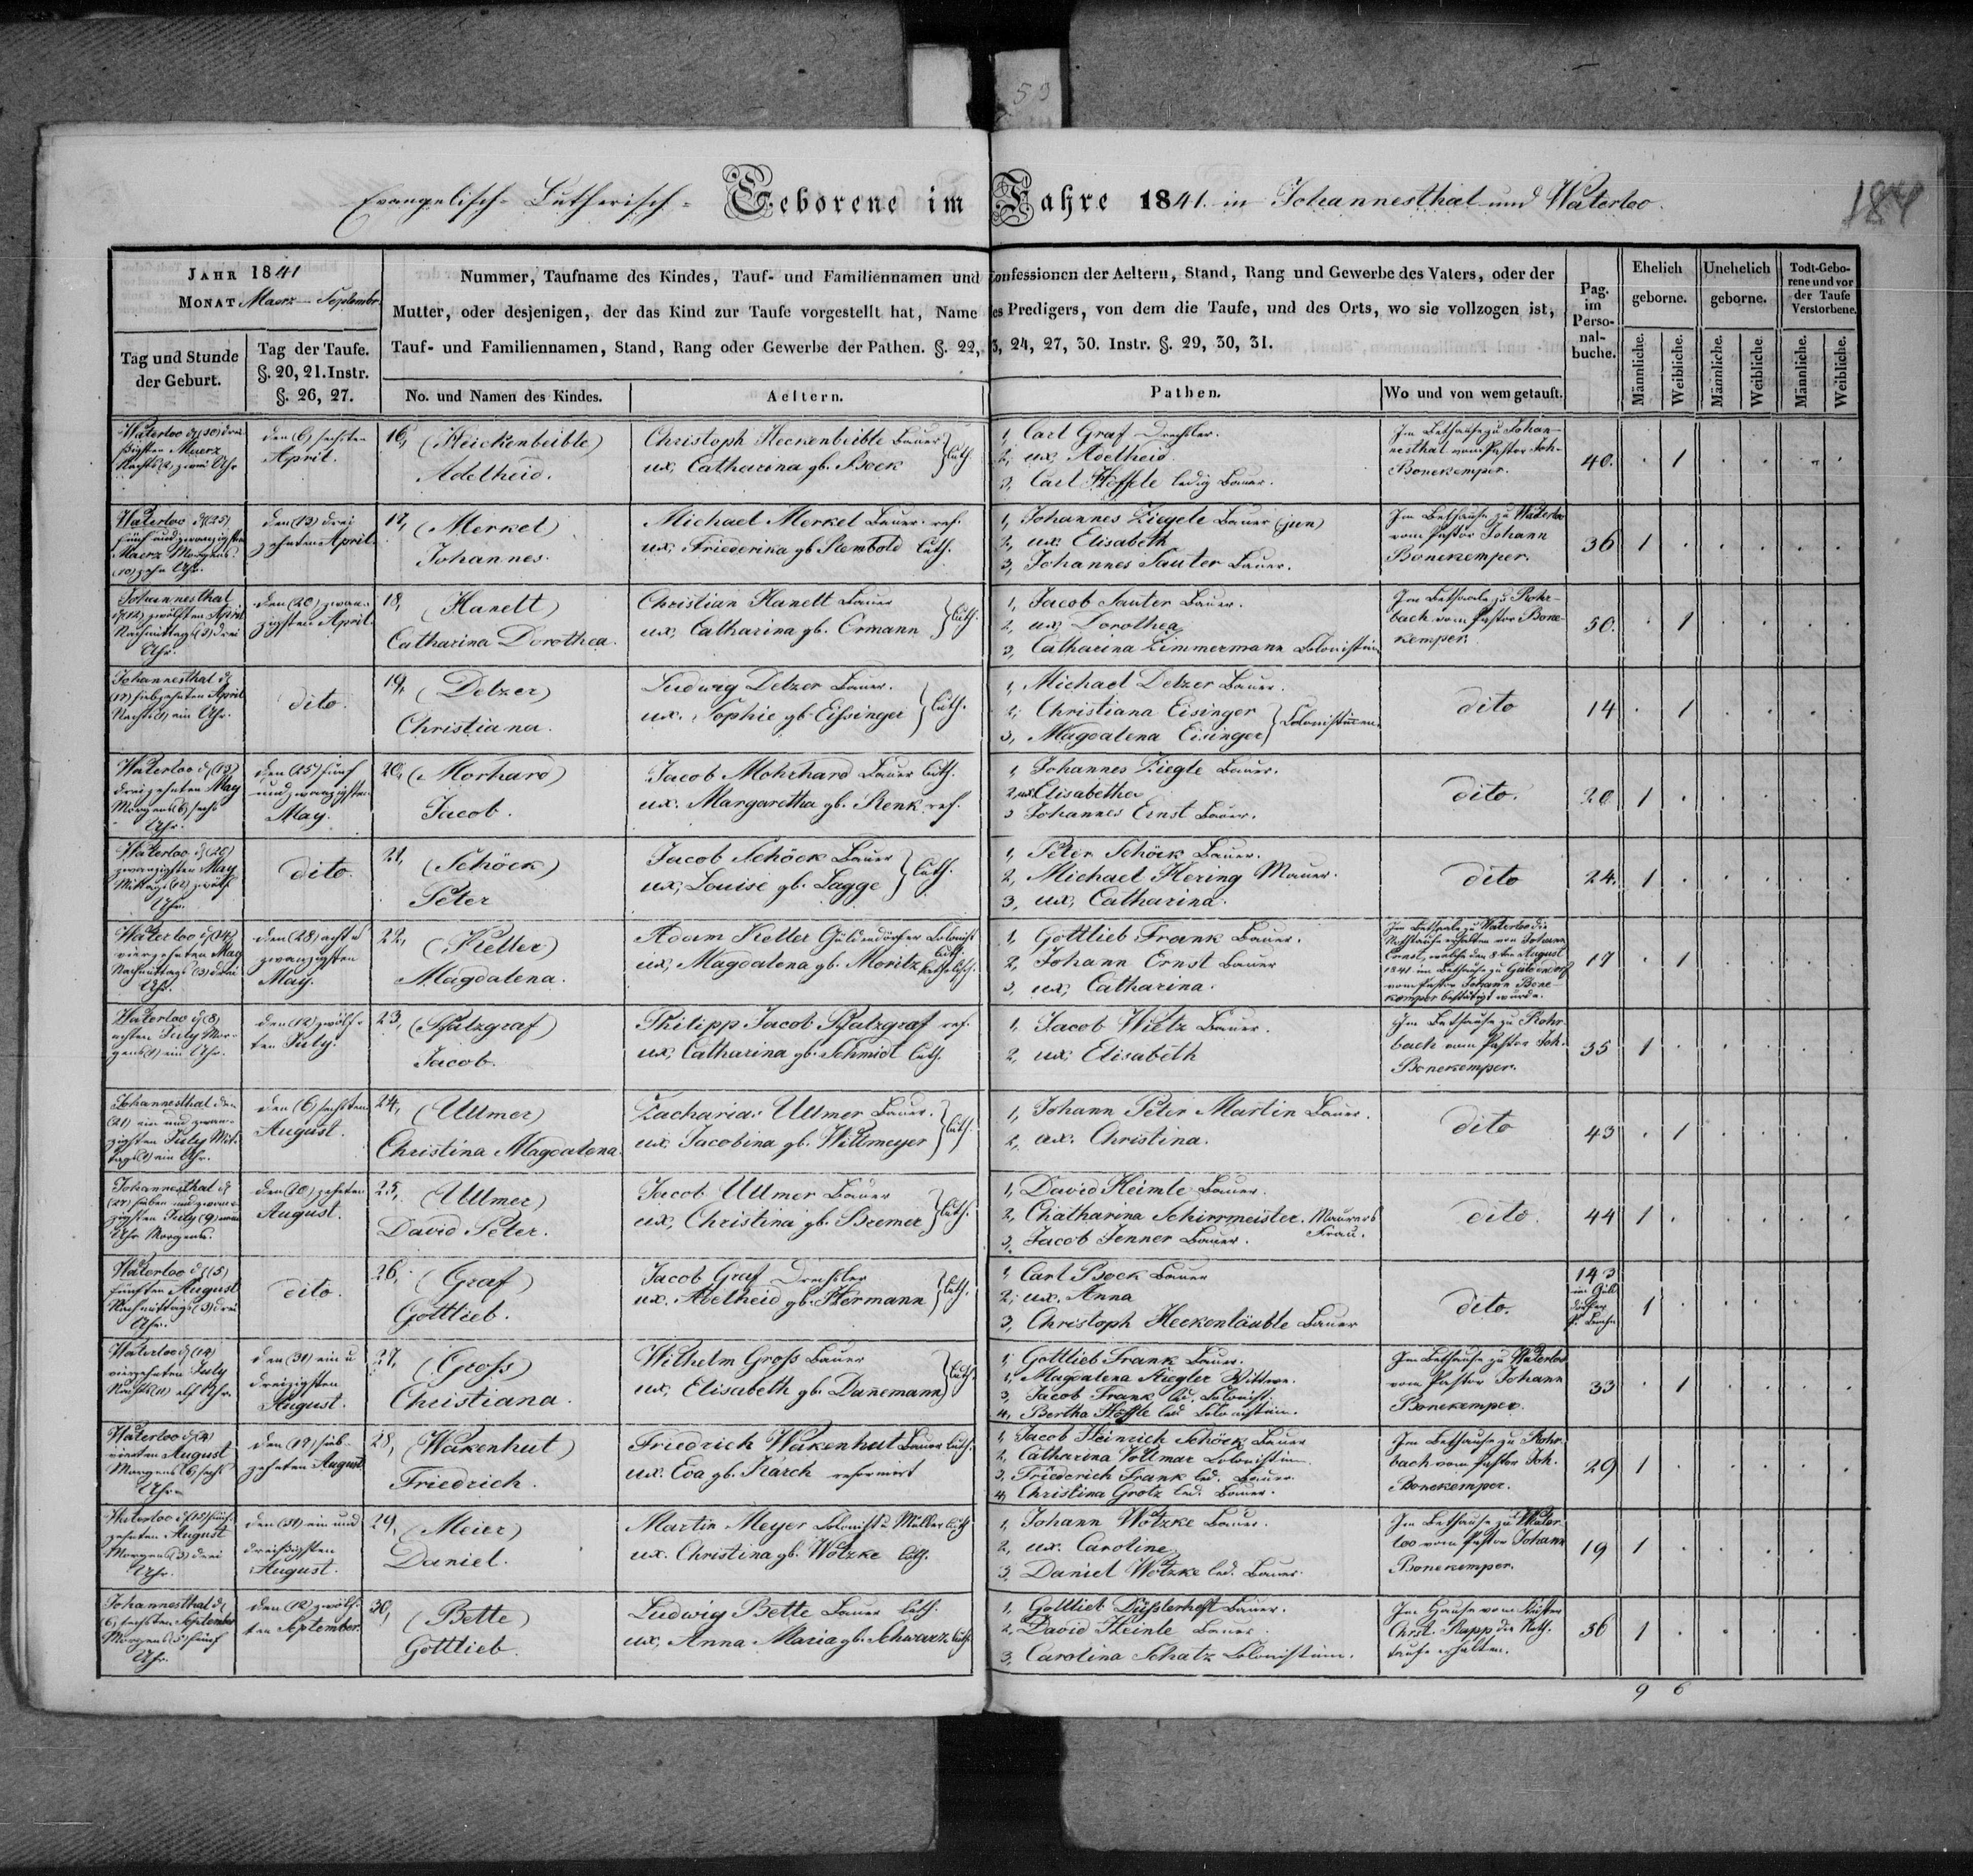 59
Evangelisch-Lutherisch- Geborene im Jahre 1841. in Johannesthal und Waterloo.
184
JAHR 1841
MONAT Maerz — Septembr.
Tag und Stunde
der Geburt.
Tag der Taufe.
§. 20, 21. Instr.
§. 26, 27.
Nummer, Taufname des Kindes, Tauf- und Familiennamen und Confessionen der Aeltern, Stand, Rang und Gewerbe des Vaters, oder der
Mutter, oder desjenigen, der das Kind zur Taufe vorgestellt hat, Name des Predigers, von dem die Taufe, und des Orts, wo sie vollzogen ist,
Tauf- und Familiennamen, Stand, Rang oder Gewerbe der Pathen. §. 22, 23, 24, 27, 30. Instr. §. 29, 30, 31.
No. und Namen des Kindes.
Aeltern.
Pathen.
Wo und von wem getauft.
Pag.
im
Perso-
nal-
buche.
Ehelich
geborne.
Unehelich
geborne.
Todt-Gebo-
rene und vor
der Taufe
Verstorbene.
Männliche.
Weibliche.
Männliche.
Weibliche.
Männliche.
Weibliche.
Waterloo d (30) drei
ßigsten Maerz
Nachts (2) zwei Uhr
den (6) sechsten
April.
16, (Heickenbeible)
Adelheid.
Christoph Heckenbeible Bauer
ux, Catharina gb. Bock } luth.
1, Carl Graf Drechsler.
2, ux, Adelheid
3, Carl Höffele ledig Bauer.
Im Bethause zu Johan-
nesthal vom Pastor Joh.
Bonekemper.
40. 1
Waterloo d (25)
fünf und zwanzigsten
Maerz Morgens
(10) zehn Uhr.
den (13) drei
zehnten April.
17, (Merkel)
Johannes.
Michael Merkel Bauer. ref.
ux, Friederika gb Stembold luth.
1, Johannes Ziegele Bauer (jun)
2, ux. Elisabeth
3, Johannes Sauter Bauer.
Im Bethause zu Waterloo
vom Pastor Johann
Bonekemper.
36 1
Johannesthal
d (12) zwölften April
Nachmittags (3) drei
Uhr.
den (20) zwan-
zigsten April.
18, (Hanelt)
Catharina Dorothea.
Christian Hanelt Bauer
ux, Catharina gb. Ormann } luth.
1, Jacob Sauter Bauer.
2, ux, Dorothea
3, Catharina Zimmermann Colonistin
Im Bethsaale zu Rohr-
bach vom Pastor Bone-
kemper.
50. 1
Johannesthal d
(17) siebzehnten April
Nachts (1) ein Uhr.
dito.
19, (Delzer)
Christiana.
Ludwig Delzer Bauer.
ux. Sophie gb Eißinger } luth.
1, Michael Delzer Bauer.
2, Christiana Eisinger
3, Magdalena Eisinger } Colonistinnen
dito
14 1
Waterloo d (13)
dreizehnten May
Morgens (6) sechs
Uhr.
den (25) fünf
und zwanzigsten
May.
20, (Morhard)
Jacob.
Jacob Mohrhard Bauer luth.
ux. Margaretha gb. Renk ref.
1, Johannes Ziegle Bauer.
2, ux Elisabetha
3 Johannes Ernst Bauer.
dito.
20 1
Waterloo d (20)
zwanzigsten May
Mittags (12) zwölf
Uhr.
dito.
21, (Schöck)
Peter
Jacob Schöck Bauer
ux, Louise gb. Lagge } luth.
1, Peter Schöck Bauer.
2, Michael Hering Maurer.
3, ux, Catharina.
dito
24. 1
Waterloo d (14)
vierzehnten May
Nachmittags (3) drei
Uhr.
den (28) acht u
zwanzigsten
May.
22, (Keller)
Magdalena.
Adam Keller Güldendörfer Colonist
luth.
ux, Magdalena gb. Moritz katholisch.
1, Gottlieb Frank Bauer.
2, Johann Ernst Bauer
3, ux, Catharina.
Im Bethsaale zu Waterloo die
Nothtaufe erhalten von Johann
Ernst, welche den 8ten August
1841 im Bethause zu Güldendorf
vom Pastor Johann Bone-
kemper bestätigt wurde.
17 1
Waterloo d (8)
achten July Mor-
gens (1) ein Uhr.
den (12) zwölf-
ten July.
23, (Pfalzgraf)
Jacob.
Philipp Jacob Pfalzgraf ref.
ux, Catharina gb. Schmidt luth.
1, Jacob Wütz Bauer.
2, ux, Elisabeth
Im Bethause zu Rohr-
bach vom Pastor Joh.
Bonekemper.
35 1
Johannesthal den
(21) ein und zwan-
zigsten July Mit-
tags (1) ein Uhr.
den (6) sechsten
August.
24, (Ullmer)
Christina Magdalena.
Zacharias Ullmer Bauer.
ux, Jacobina gb. Wittmeyer } luth.
1, Johann Peter Martin Bauer.
2, ux. Christina.
dito
43 1
Johannesthal d
(27) sieben und zwan-
zigsten July (9) neun
Uhr Morgens.
den (10) zehnten
August.
25, (Ullmer)
David Peter.
Jacob Ullmer Bauer
ux, Christina gb. Bremer } luth.
1, David Heimle Bauer.
2, Chatharina Schirrmeister. Maurers
Frau.
3, Jacob Jenner Bauer.
dito.
44 1
Waterloo d (5)
fünften August
Nachmittags (3) drei
Uhr.
dito.
26, (Graf)
Gottlieb.
Jacob Graf Drechsler
ux. Adelheid gb. Hermann } luth.
1, Carl Bock Bauer
2, ux. Anna
3, Christoph Heckenläuble Bauer
dito.
143
im Güld
dörfer
1
Waterloo d (14)
vierzehnten July
Nachts (11) elf Uhr.
den (31) ein u
dreizigsten
August.
27, (Groß)
Christiana.
Wilhelm Groß Bauer
ux, Elisabeth gb. Danemann } luth.
1, Gottlieb Frank Bauer.
2, Magdalena Stiegler Wittwe.
3, Jacob Frank led. Colonist.
4, Bertha Höffle led Colonistin.
Im Bethause zu Waterloo
vom Pastor Johann
Bonekemper.
33 1
Waterloo d (4)
vierten August
Morgens (6) sechs
Uhr.
den (17) sieb-
zehnten August
28, (Wakenhut)
Friedrich.
Friedrich Wakenhut Bauer luth.
ux. Eva gb. Karch reformirt
1, Jacob Heinrich Schöck Bauer
2, Catharina Vollmar Colonistin
3, Friederich Frank led. Bauer.
4, Christina Grotz led. Bauer.
Im Bethause zu Rohr
bach vom Pastor Joh.
Bonekemper.
29 1
Waterloo d (15) fünf-
zehnten August
Morgens (3) drei
Uhr.
den (31) ein und
dreißigsten
August.
29, (Meier)
Daniel.
Martin Meyer Colonist u Müller luth
ux. Christina gb. Wotzke luth.
1, Johann Wotzke Bauer.
2, ux. Caroline
3, Daniel Wotzke led. Bauer.
Im Bethause zu Water-
loo vom Pastor Johann
Bonekemper.
19 1
Johannesthal d
(6) sechsten September
Morgens (5) fünf
Uhr.
den (12) zwölf-
ten September.
30, (Bette)
Gottlieb.
Ludwig Bette Bauer luth.
ux, Anna Maria gb. Schwarz luth.
1, Gottlieb Düßterheft Bauer.
2, David Heinle Bauer.
3, Carolina Schatz Colonistinn.
Im Hause vom Küster
Christ. Rapp die Noth-
taufe erhalten.
56 1
9 6